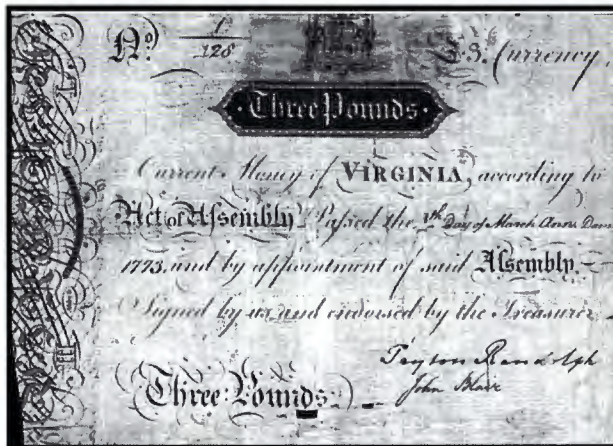 No. 1
128
Currency,
Three Pounds
Current Money of VIRGINIA, according to
Act of Assembly Passed the 4th Day of March Anno Dom
1773. and by appointment of said Assembly.
Signed by us and endorsed by the Treasurer
Peyton Randolph
John Blair
Three Pounds